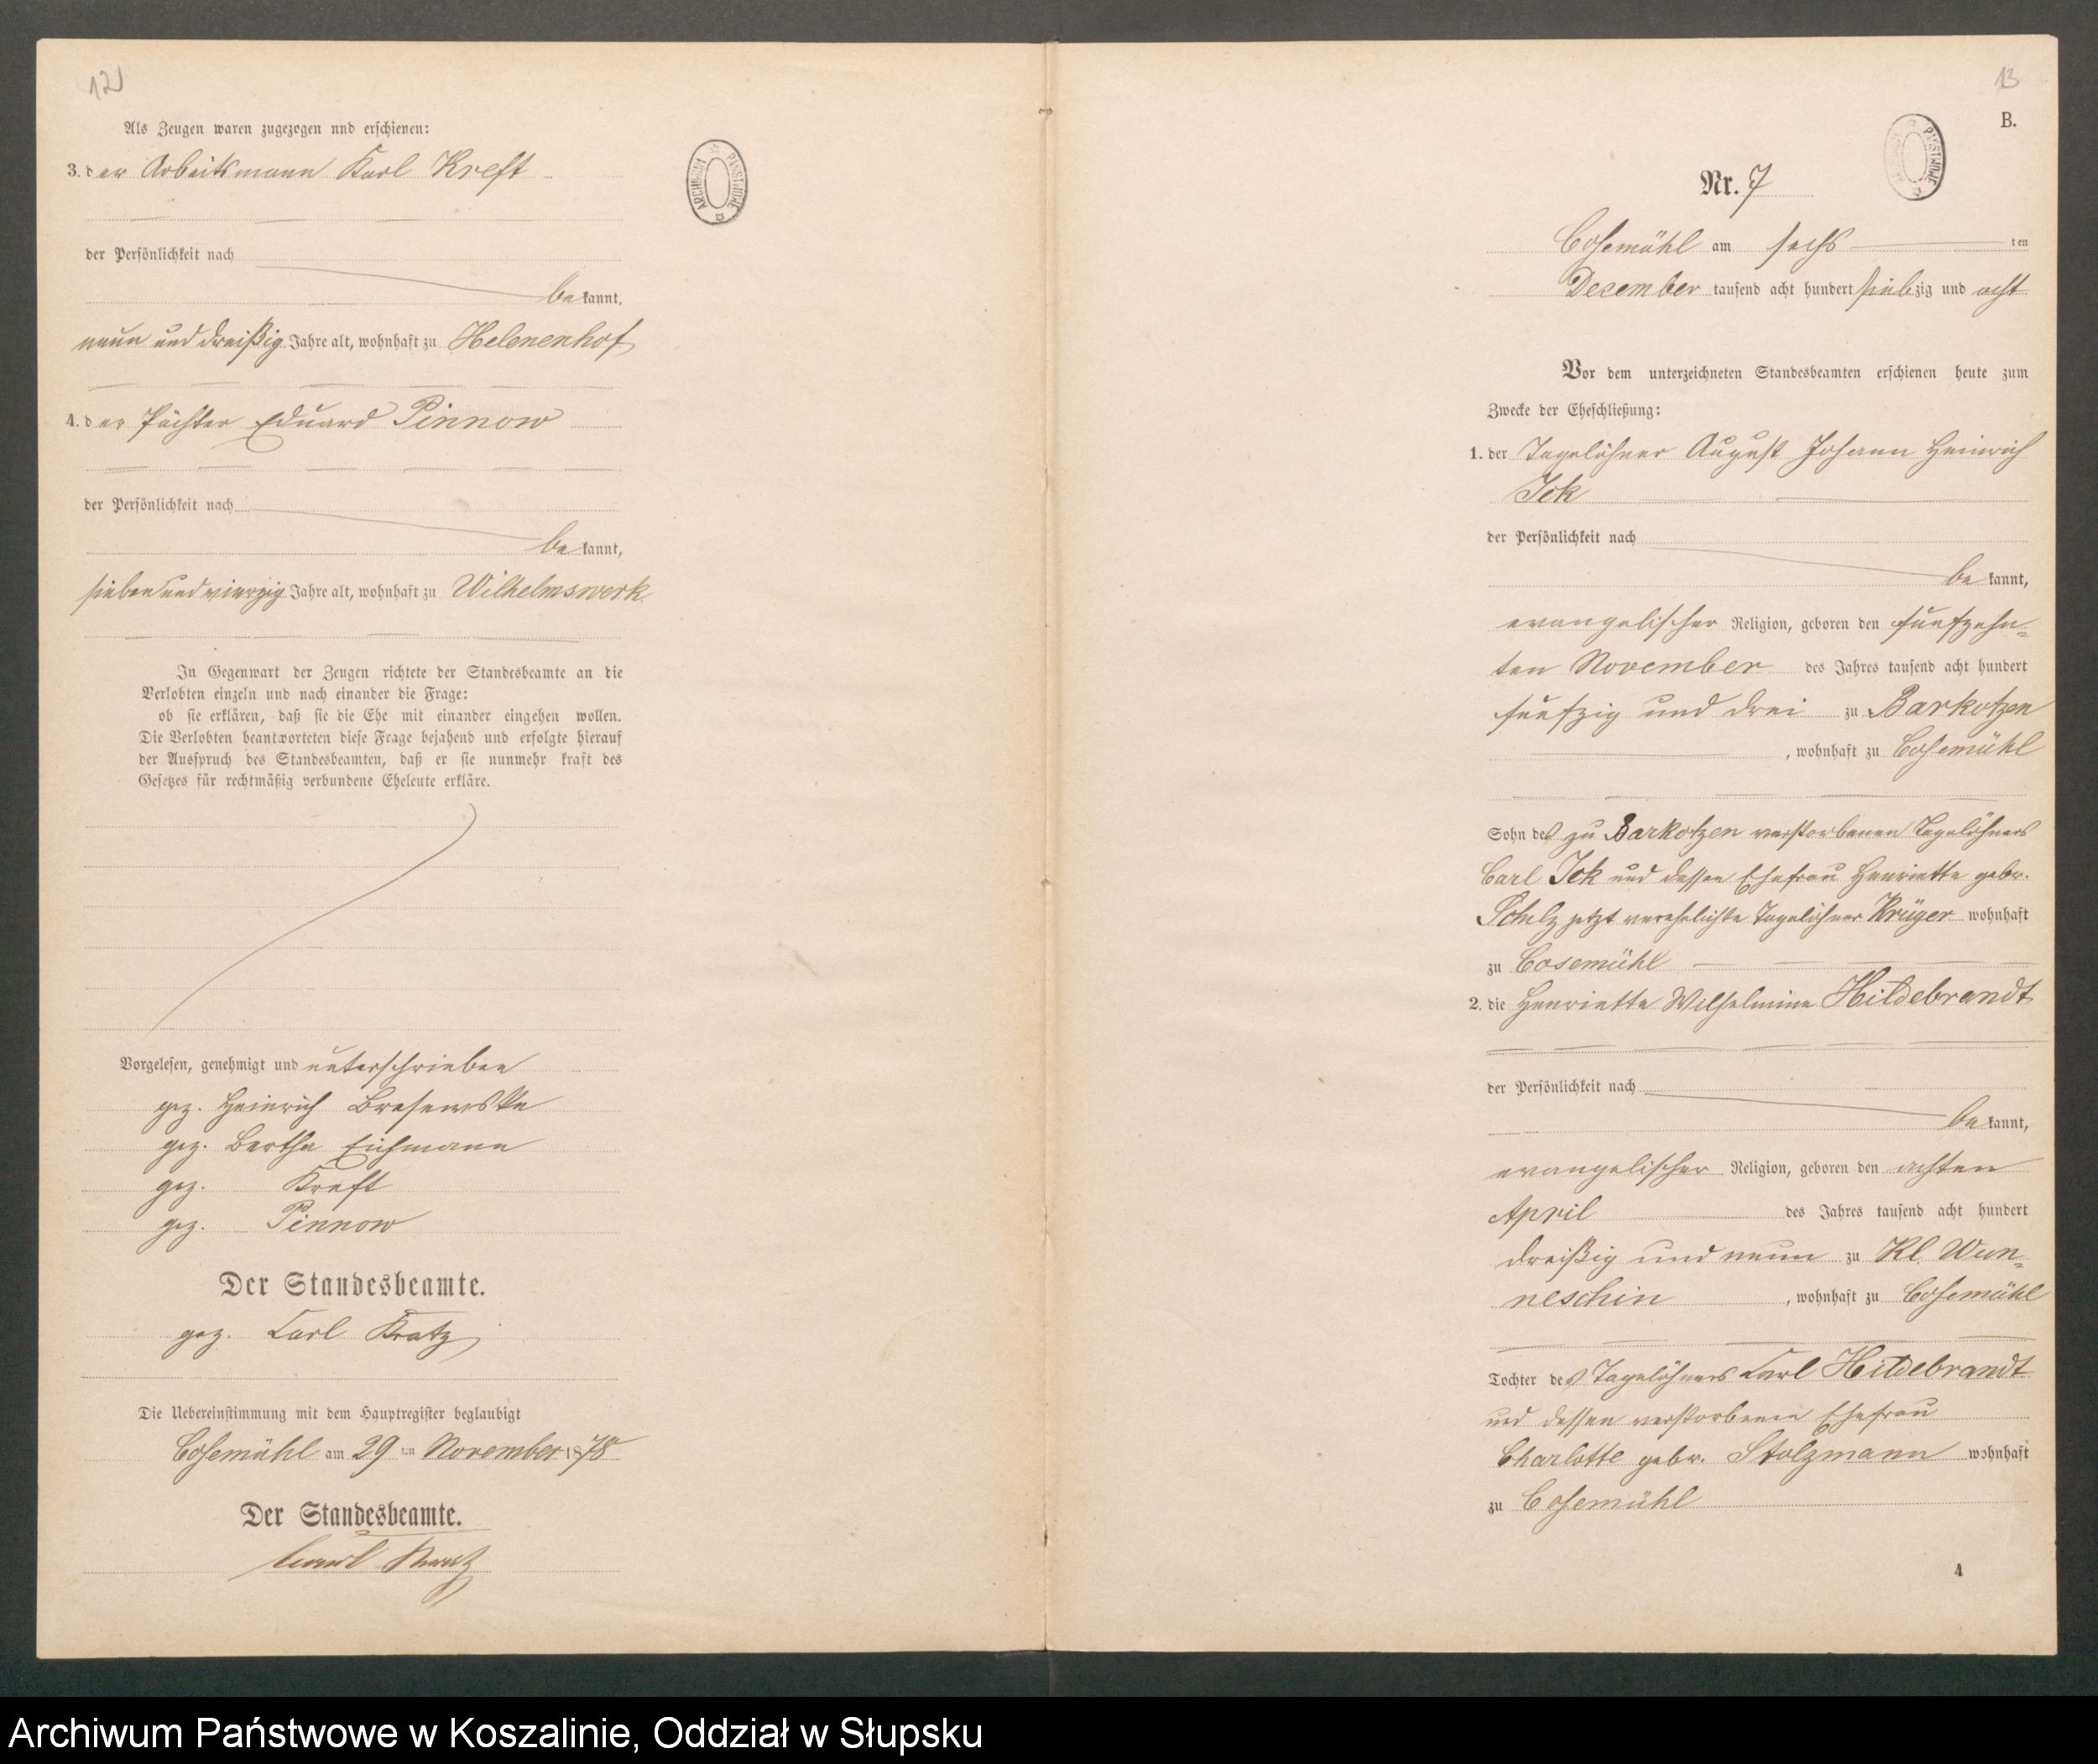 12
Als Zeugen waren zugezogen und erschienen:
3. der Arbeitsmann Karl Kreft
der Persönlichkeit nach
bekannt,
neun und dreißig Jahre alt, wohnhaft zu Helenenhof
4. der Pächter Eduard Pinnow
der Persönlichkeit nach
bekannt,
sieben und vierzig Jahre alt, wohnhaft zu Wilhelmswerk
In Gegenwart der Zeugen richtete der Standesbeamte an die
Verlobten einzeln und nach einander die Frage:
ob sie erklären, daß sie die Ehe mit einander eingehen wollen.
Die Verlobten beantworteten diese Frage bejahend und erfolgte hierauf
der Ausspruch des Standesbeamten, daß er sie nunmehr kraft des
Gesetzes für rechtmäßig verbundene Eheleute erkläre.
Vorgelesen, genehmigt und unterschrieben
gez. Heinrich
gez. Bertha Eichmann
gez. Kreft
gez. Pinnow
Der Standesbeamte.
gez. Carl Kratz
Die Uebereinstimmung mit dem Hauptregister beglaubigt
Cosemühl am 29 ten November 1878
Der Standesbeamte.
Carl Kratz
ARCHIWUM PAŃSTWOWE
13
B.
ARCHIWUM PAŃSTWOWE
Nr. 7
Cosemühl am sechs ten
Dezember tausend acht hundert siebzig und acht
Vor dem unterzeichneten Standesbeamten erschienen heute zum
Zwecke der Eheschließung:
1. der Tagelöhner August Johann Heinrich
Jok
der Persönlichkeit nach
bekannt,
evangelischer Religion, geboren den fünfzehn-
ten November des Jahres tausend acht hundert
fünfzig und drei zu Barkotzen
, wohnhaft zu Cosemühl
Sohn des zu Barkotzen verstorbenen Tagelöhners
Carl Jok und dessen Ehefrau Henriette gebr.
Schulz jetzt verehelichte Tagelöhner Krüger wohnhaft
zu Cosemühl
2. die Henriette Wilhelmine Hildebrandt
der Persönlichkeit nach
bekannt,
evangelischer Religion, geboren den achten
April des Jahres tausend acht hundert
dreißig und neun zu Kl. Wun-
neschin , wohnhaft zu Cosemühl
Tochter des Tagelöhners Carl Hildebrandt
und dessen verstorbenen Ehefrau
Charlotte gebr. Stolzmann wohnhaft
zu Cosemühl
4
Archiwum Państwowe w Koszalinie, Oddział w Słupsku